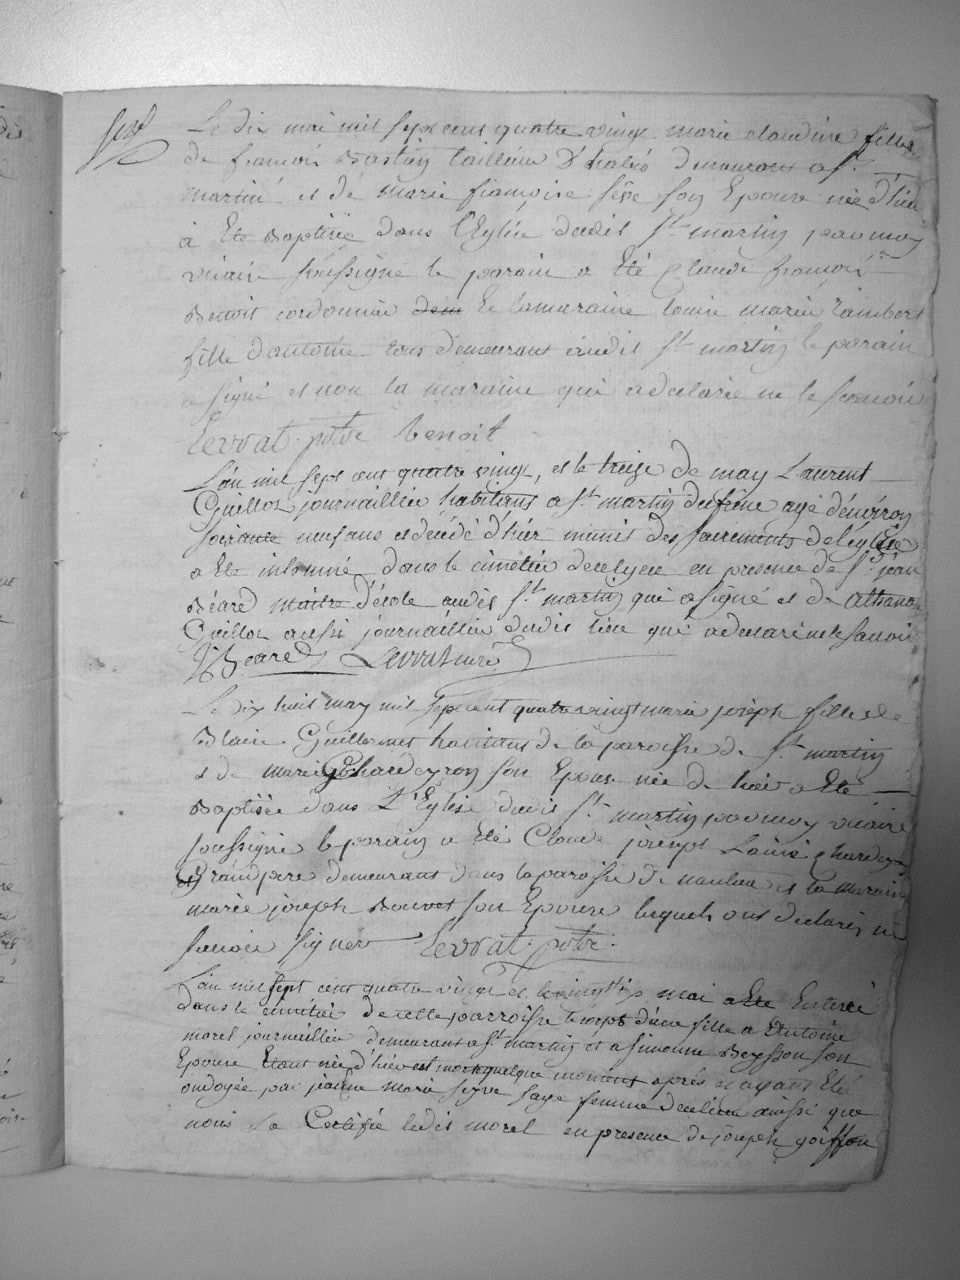 Le dix mai mil sept cent quatre vingt marie claudine fille
de francois Bastin tailleur d'habis demeurant a St
martin et de marie francoise sève son Epouse née d'hier
à Eté Baptisée dans l'Eglise dudit St martin par moy
vicaire soussigné le parain a Eté Claude francois
Benoit cordonnier et la maraine marie Rambert
fille d'antoine tous demeurant audit St martin le parain
a signé et non la maraine qui a declarée ne le scavoir
Levrat ptre benoit
L'an mil sept cent quatre vingt, et le treize de may Laurent
Guillot journaillier habitant a St martin du frene agé d'environ
soixante neuf ans et décédé d'hier munit des sacrements de l'église
a Eté inhumé dans le cimetier decelyeu en presence de Sr jean
Béard maitre d'école audit St martin qui a signé et de athanase
Guillot aussi journaillier dudit lieu qui a declaré ne le savoir
Beard Levrat curé
Le dix huit may mil sept cent quatre vingt marie joseph fille de
Blaise Guillermet havitant de la paroisse de St martin
et de marie Chardeyron son Epouse née de hier a Eté
Baptisée dans L'Eglise dudit St martin par moy vicaire
soussigné le parain a Eté Claude joseph Chardeyron
Grandpere demeurant dans la paroisse de nantua et la maraine
marie joseph Bouvet son Epouse lequels ont declarés ne
savoir signer Levrat ptre
L'an mil sept cent quatre vingt et le vingt six mai a Eté Enterré
dans le cimitié de cette parroisse le corps d'une fille a Antoine
morel journaillier demeurant a St martin et a simonne Beysson son
Epouse Etant née d'hier est morte quelque moment après et ayant Eté
ondoyée par jeanne marie seyve sage femme aussi que
nous La Certifié ledit morel en presence de joseph goiffon